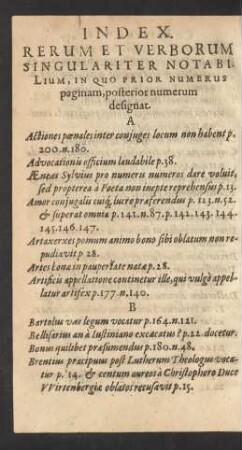 INDEX.
RERUM ET VERBORUM
SINGULARITER NOTABI-
LIUM, IN QUO PRIOR NUMERUS
paginam, posterior numerum
designat.
A
Actiones pœnales inter conjuges locum non habent p.
200. n. 180.
Advocationis officium laudabile p. 38.
Æneas Sylvius pro numero numeros dare voluit,
sed propterea à Poeta non ineptè reprehensus p. 13.
Amor conjugalis cuiq́; lucro præferendus p. 123. n. 52.
& superat omnia p. 141. n. 87. p. 142. 143. 144.
145. 146. 147.
Artaxerxes pomum animo bono sibi oblatum non re-
pudiavit p 28.
Artes bona in paupertate natæ p. 28.
Artificis appellatione continetur ille, qui vulgò appel-
latur artifex p. 177. n. 140.
B
Bartolus vas legum vocatur p. 164. n. 121.
Bellisarius an à Iustiniano excæcatus? p. 22. docetur.
Bonus quilibet præsumendus p. 180. n. 48.
Brentius præcipuus post Lutherum Theologus voca-
tur p. 14. & centum aureos à Christophero Duce
VVirtenbergiæ oblatos recusavit p. 15.